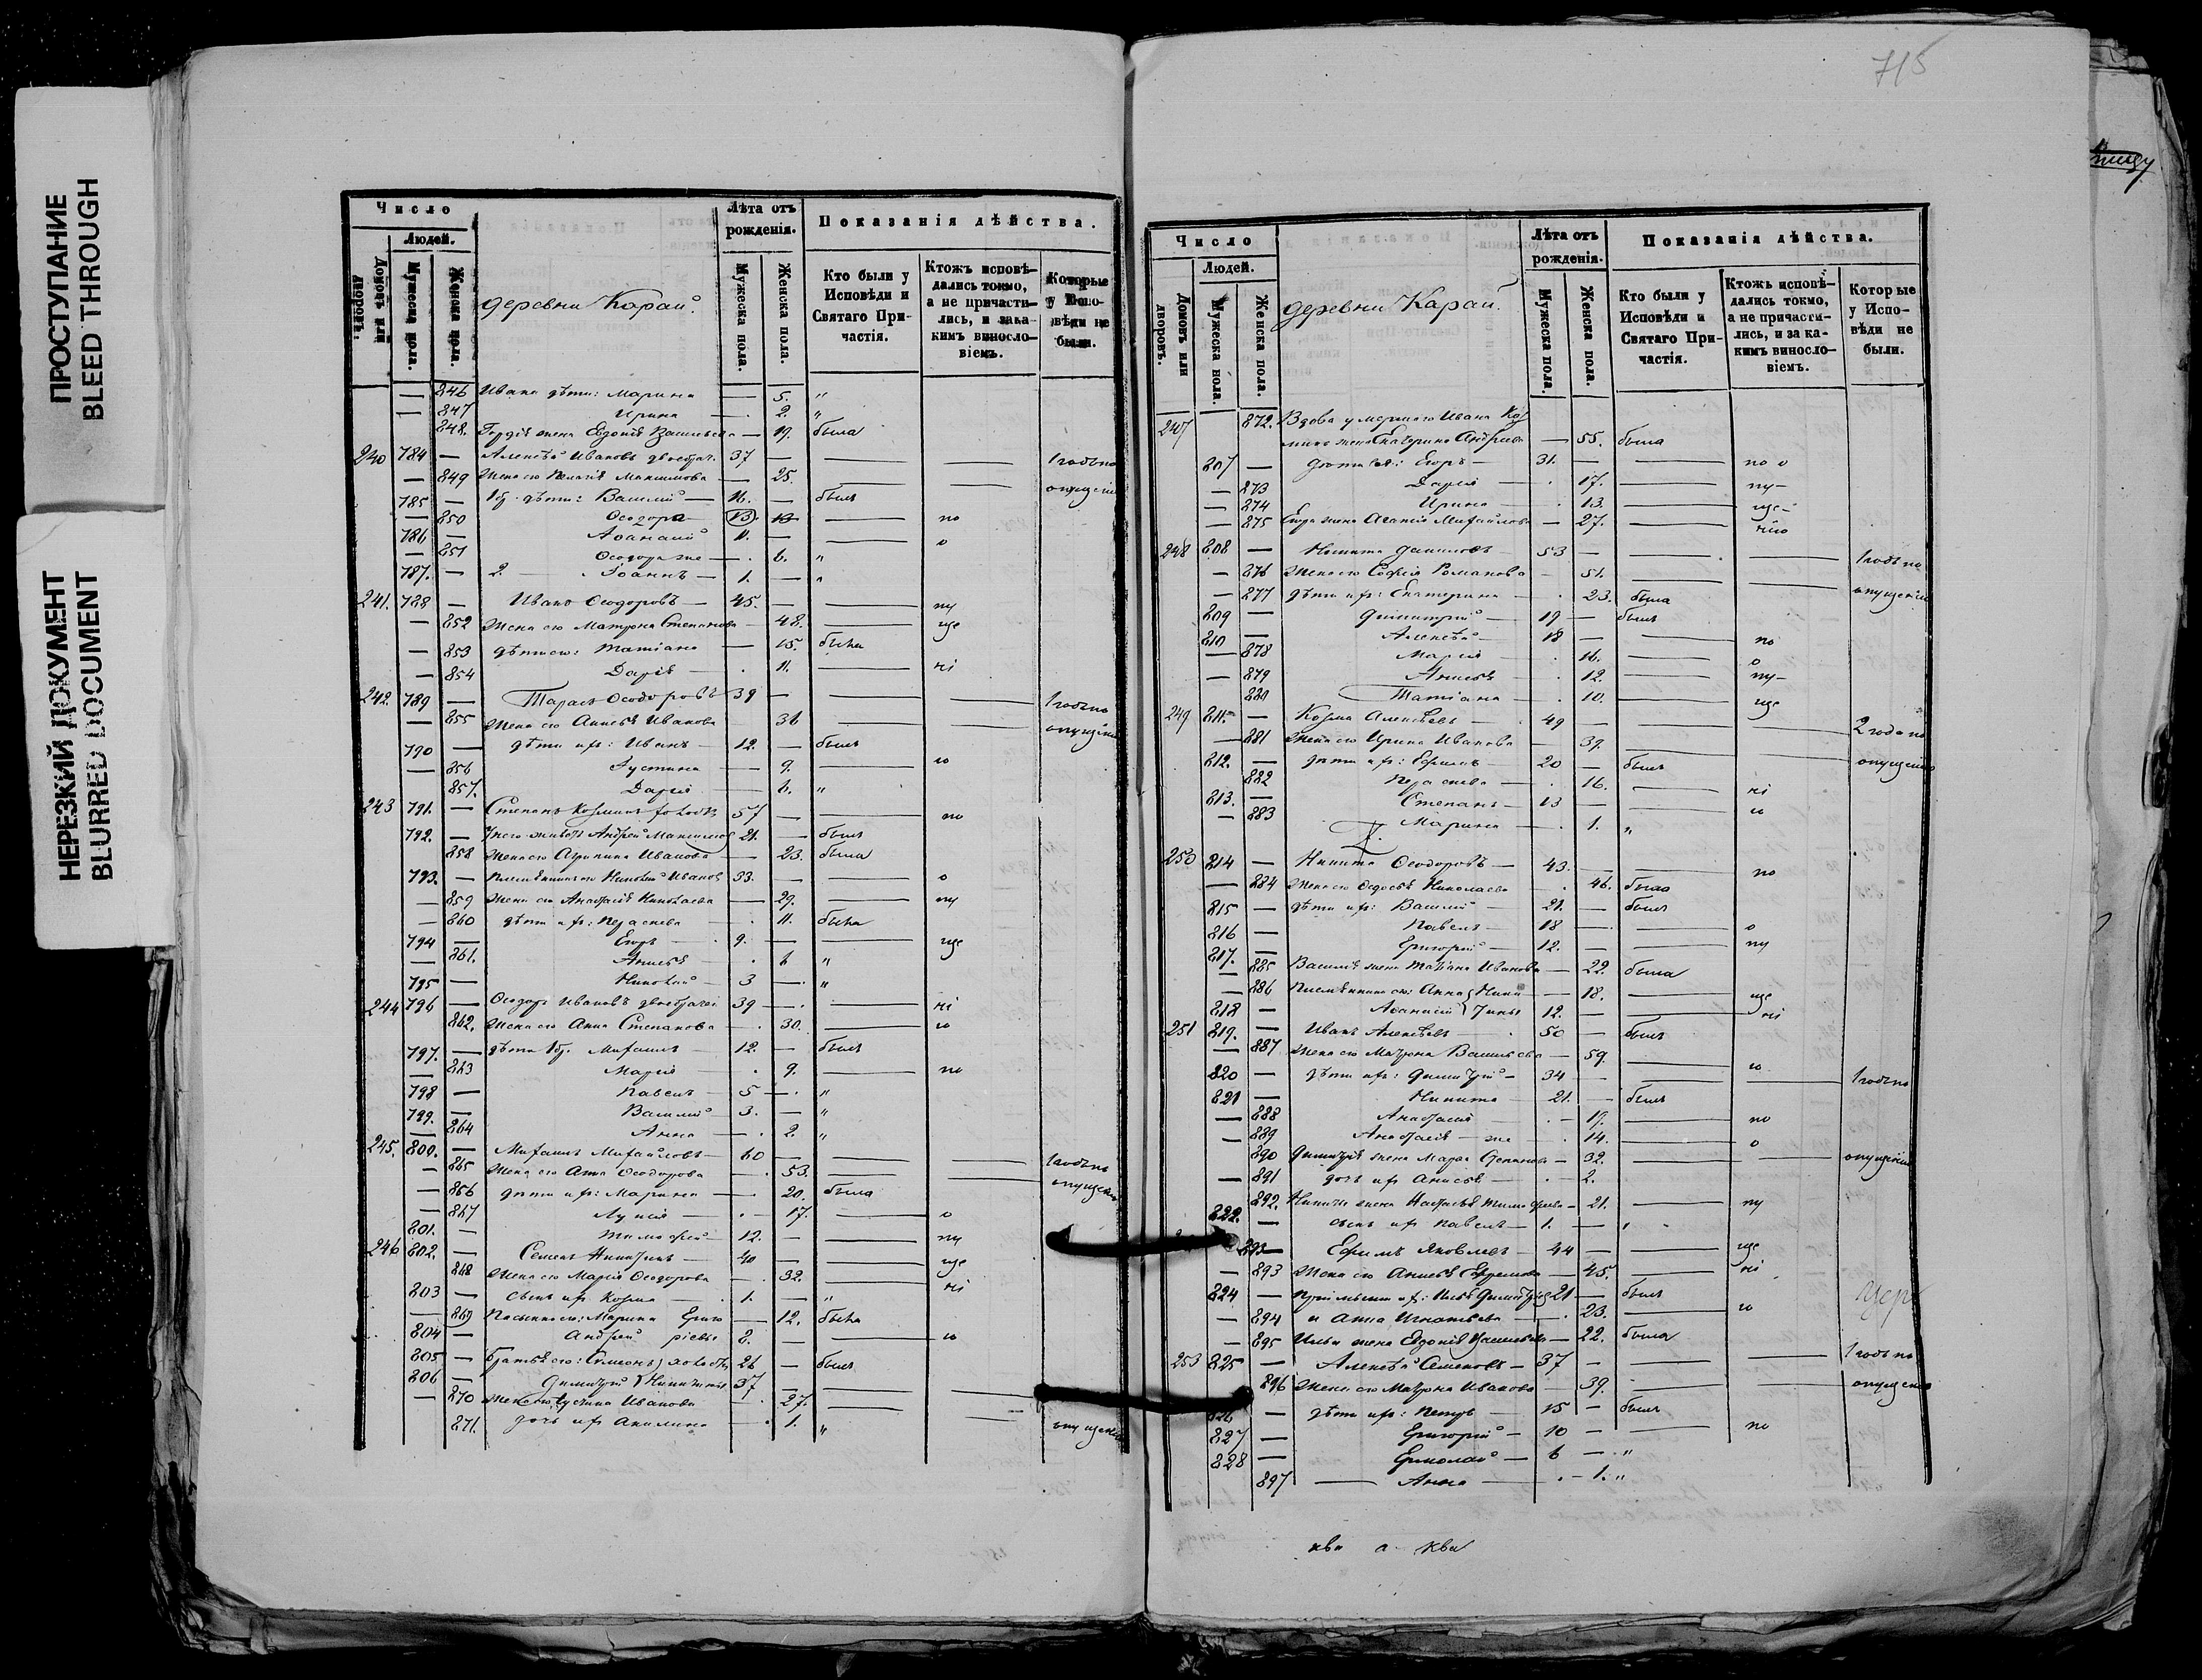 715
ПРОСТУПАНИЕ
BLEED THROUGH
НЕРЕЗКИЙ ДОКУМЕНТ
BLURRED DOCUMENT
Число
Людей.
Домовъ или дворовъ.
Мужеска пола.
Женска пола.
деревни Карай.
Лѣта отъ рожденія.
Мужеска пола.
Женска пола.
Показанія дѣйства.
Кто были у Исповѣди и Святаго Причастія.
Ктожъ исповѣдались токмо, а не причастились, и за какимъ винословіемъ.
Которые у Исповѣди не были.
— 846 Ивана дѣти: Марина — 5. "
— 847 Ирина — 2. "
848. Гордія жена Евдокія Васильева — 19. была
240 784 — Алексѣй Ивановъ двоебрач. 37 — — — 1 годъ по
— 849 Жена его Пелагія Максимова — 25. — — опущенію
785 — 1 бр. дѣти: Василій — 16. — былъ
— 850 Ѳеодора 13 — по
786 — Аѳанасій 11. — о
— 851 Ѳеодора же — 6. "
787. — 2. Іоаннъ — 1. — "
241. 788 — Иванъ Ѳеодоровъ — 45. — — пу
— 852 Жена его Матрона Степанова — 48. — ще
— 853 дѣти его: Татіана 15. была
— 854 Дарія — 11. — ні
242. 789 — Тарасъ Ѳеодоровъ 39 — — — 1 годъ по
— 855 Жена его Анисья Иванова 31 — — опущенію
790 — дѣти ихъ: Иванъ — 12. — былъ
— 856 Іустина — 9. — ю
857. Дарія — 6. "
243 791. — Степанъ Козминъ холостъ 57 — — по
792. — У него живетъ Андрей Максимовъ 21. — былъ
858 Жена его Агрипина Иванова — 23. была
793. — Племянникъ его Николай Ивановъ 33. — — о
— 859 Жена его Анастасія Николаева — 29. — пу
— 860 дѣти ихъ: Параскева — 11. была
794 — Егоръ — 9. — — ще
— 861. Анисья — 6 "
795 — Николай — 3 — "
244 796 — Ѳеодоръ Ивановъ двоебрачен 39 — — ні
862. Жена его Анна Степанова — 30. — ю
797. — дѣти 1 бр. Михаилъ — 12. — былъ
— 863 Марія — 9. — по
798 — Павелъ — 5 — "
799. — Василій — 3. — "
— 864 Анна — 2. "
245. 800. — Михаилъ Михайловъ — 60 — — — 1 годъ по
— 865 Жена его Анна Ѳеодорова — 53. — — опущенію
— 866 дѣти ихъ: Марина — 20. была
— 867 Лукія — 17. — о
801. — Тимоѳей — 12. — — пу
246 802. — Семенъ Никитинъ — 40 — — ще
868 Жена его Марія Ѳеодорова — 32. — ні
803 — сынъ ихъ Козма — 1. — "
— 869 Пасынки его: Марина Григо — 12. была
804 — Андрей ріевы 8. — — ю
805 — Братья его: Симеонъ холостъ 26 — былъ
806 — Димитрій Никитины 37 — — —
— 870 Жена его Іустина Иванова — 27. — —
871. дочь ихъ Акилина — 1. " опущенію
Число
Людей.
Домовъ или дворовъ.
Мужеска пола.
Женска пола.
деревни Карай.
Лѣта отъ рожденія.
Мужеска пола.
Женска пола.
Показанія дѣйства.
Кто были у Исповѣди и Святаго Причастія.
Ктожъ исповѣдались токмо, а не причастились, и за какимъ винословіемъ.
Которые у Исповѣди не были.
247 872. Вдова умершаго Ивана Коз
мина жена Екатерина Андреева — 55. была
807 — дѣти ея: Егоръ — 31. — — по о
— 873 Дарія — 17. — пу-
— 874 Ирина — 13. — ще-
— 875 Егора жена Агафія Михайлова — 27. — нію
248 808 — Никита Даниловъ — 53 — — — 1 годъ по
— 876 Жена его Софія Романова — 51. — — опущенію
— 877 дѣти ихъ: Екатерина — 23. была
809 — Димитрій — 19 — былъ
810 — Алексѣй — 18 — — по
— 878 Марія — 16. — о
— 879 Анисья — 12. — пу-
880 Татіана — 10. — ще
249 811. — Козма Алексѣевъ — 49 — — — 2 года по
— 881 Жена его Ирина Иванова — 39. — — опущенію
812. — дѣти ихъ: 20 — былъ
882 Параскева — 16. — ні
813. — Степанъ — 13 — — ю
— 883 Марина — 1. "
250 814 — Никита Ѳеодоровъ — 43. — — по
— 884 Жена его Ѳедосья Николаева — 46. была
815 — дѣти ихъ: Василій — 21. — былъ
816 — Павелъ — 18 — — о
817. — Григорій — 12. — — пу
— 885 Василія жена Татіана Иванова — 22. была
— 886 Племянники его: Анна Ники — 18. — ще
818 — Аѳанасій тины 12. — — ні
251 819. — Иванъ Алексѣевъ — 50 — былъ
— 887 Жена его Матрона Васильева — 59. — ю
820 — дѣти ихъ: Димитрій — 34 — — — 1 годъ по
821 — Никита — 21. — былъ
— 888 Анастасія — 19. — по
— 889 Анастасія же — 14. — о
890 Димитрія жена Марѳа Степанова — 32. — — опущенію
— 891 дочь ихъ Анисья — 2.
892. Никиты жена Настасья Тимоѳеева — 21. — пу
822. — сынъ ихъ Павелъ — 1. — "
Ефимъ Яковлевъ — 44 — — ще
— 893 Жена его Анисья Ефремова — 45. — ні
824 — Пріемыши ихъ: Илья Димитріевъ 21 — былъ
— 894 и Анна Игнатьева — 23. — ю
— 895 Ильи жена Евдокія Васильева — 22. была
253 825 — Алексѣй Семеновъ — 37 — — — 1 годъ по
896 Жена его Матрона Иванова — 39. — — опущенію
826 — дѣти ихъ: Петръ — 15 — былъ
827 — Григорій — 10 — — по
828 — Ермолай — 6 — "
897 — Анна — 1. "
ква а ква